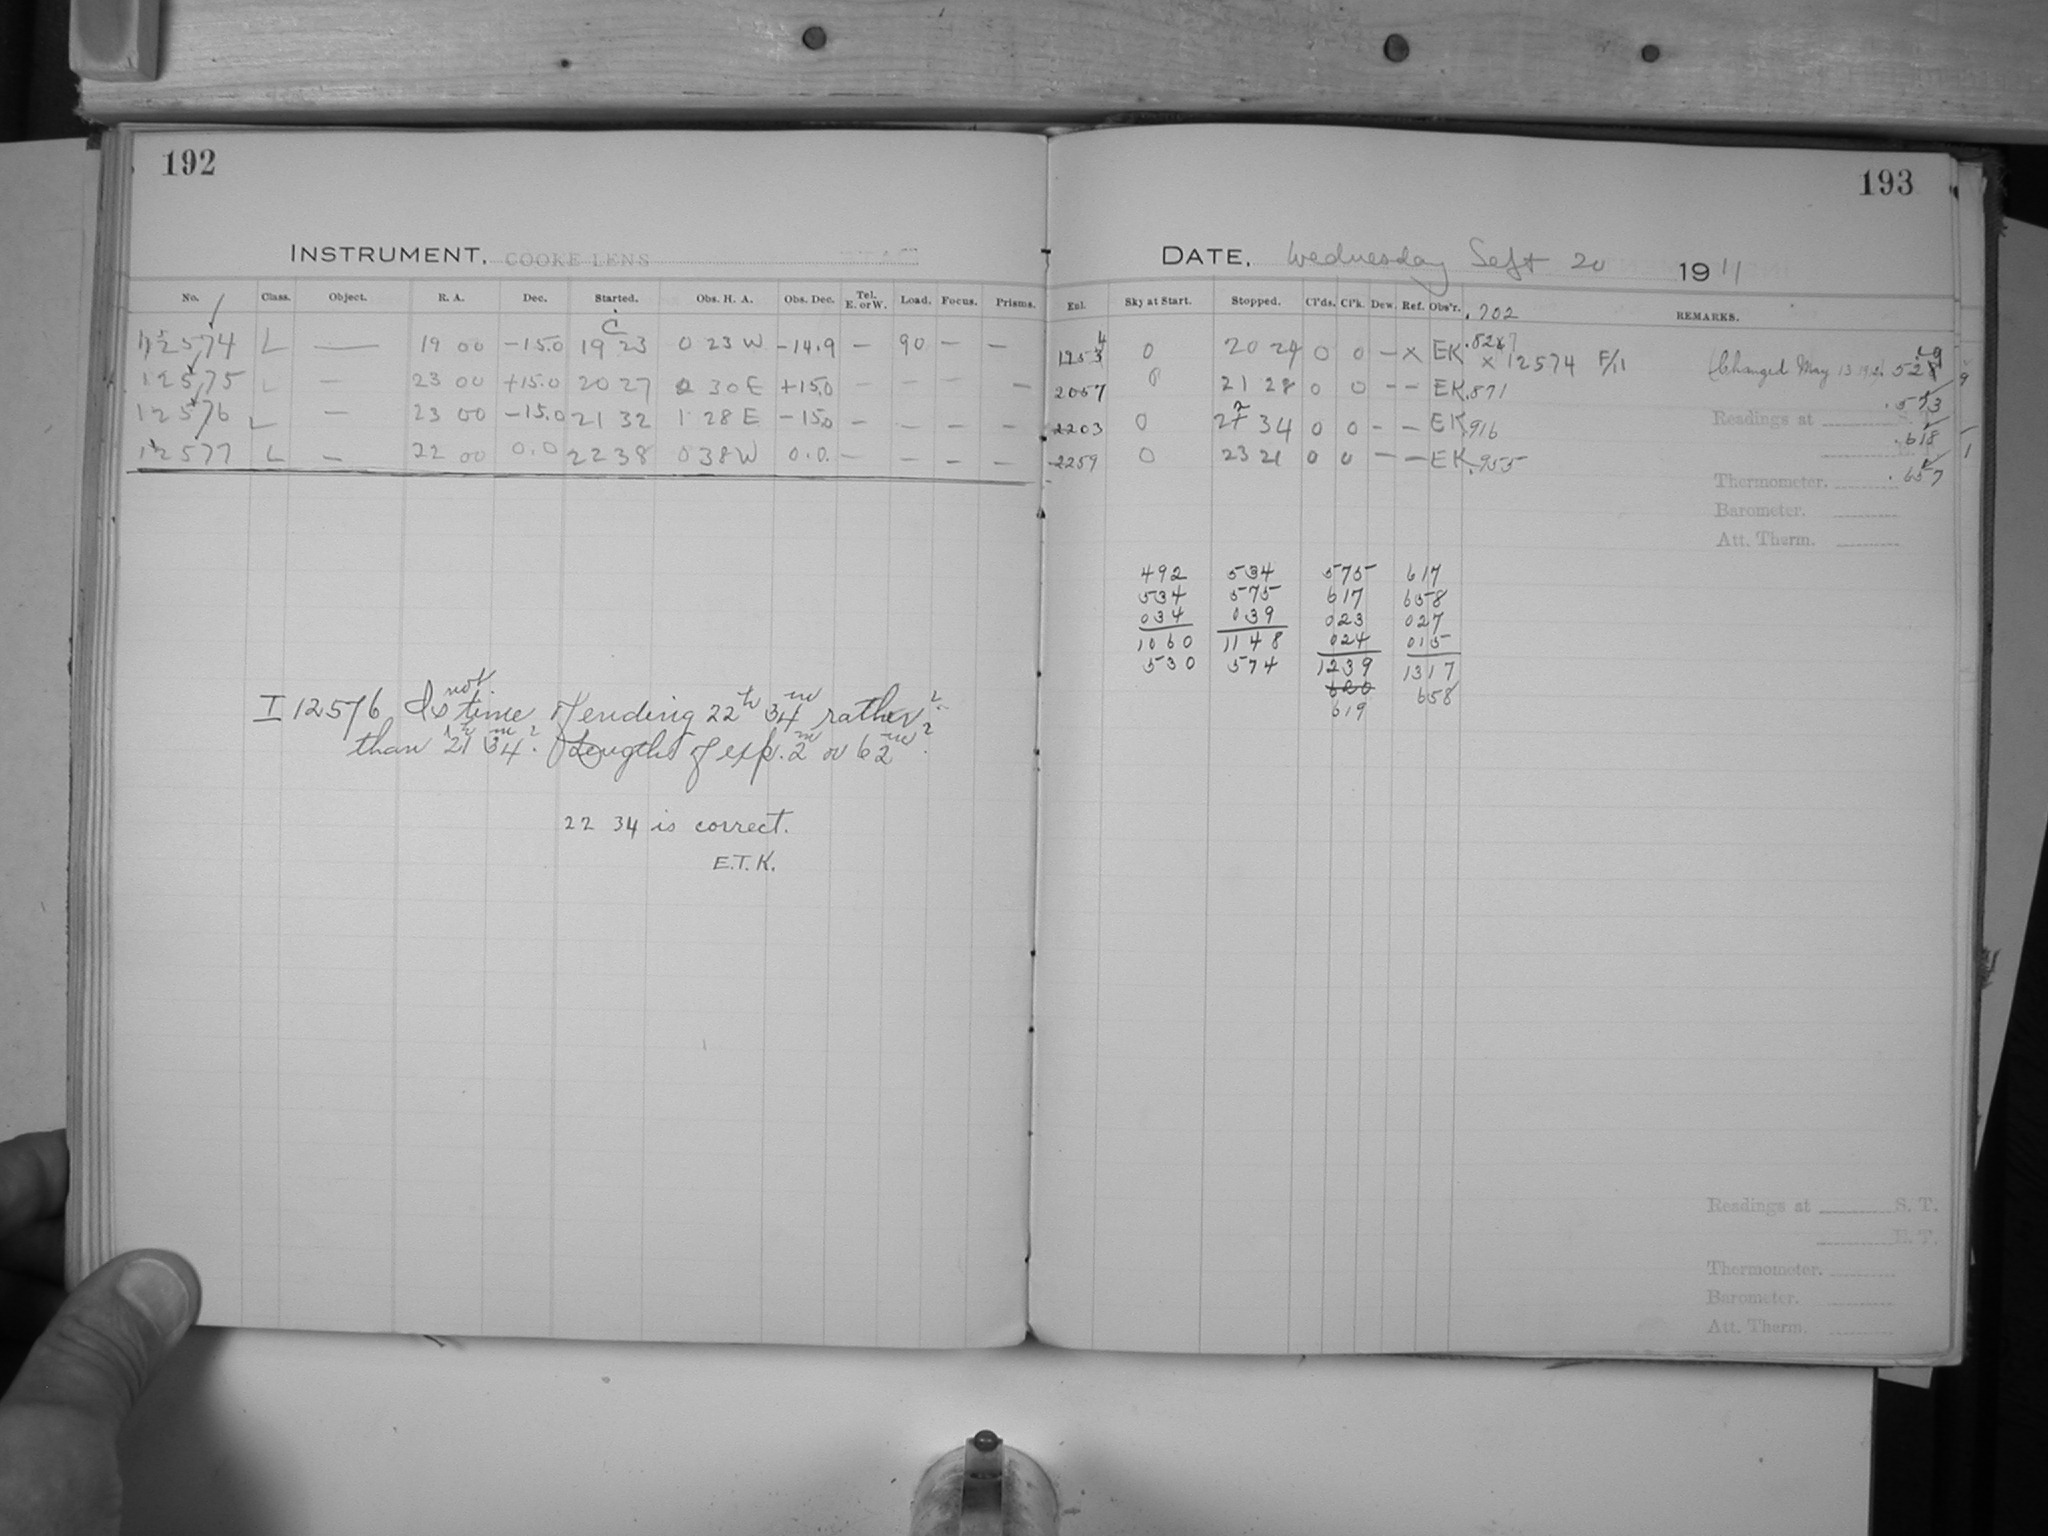 192
INSTRUMENT. COOKE LENS
No. Class. Object. R. A. Dec. Started. Obs. H. A. Obs. Dec. Tel. E. or W. Load. Focus. Prisms.
12574 L — 19 00 -15.0 19 23 0 23 W -14.9 — 90 — —
12575 L — 23 00 +15.0 20 27 2 30 E +15.0 — — — —
12576 L — 23 00 -15.0 21 32 1 28 E -15.0 — — — —
12577 L — 22 00 0.0 22 38 0 38 W 0.0. — — — —
I 12576 Is not time of ending 22h 34m rather
than 21h 34m? Lengths of exp. 2m or 62m?
22 34 is correct.
E.T.K.
193
DATE. Wednesday Sept 20 1911
Sky at Start. Stopped. Cl'ds. Cl'k. Dew. Ref. Obs'r. .702 REMARKS.
0 20 24 0 0 — × EK × 12574 F/11 (Changed May 13 1912)
2057 0 21 28 0 0 — — EK .871 .573
2203 0 22 34 0 0 — — EK .916 .618
2259 0 23 21 0 0 — — EK .955 .657
Readings at S. T.
Thermometer.
Barometer.
Att. Therm.
492 534 575 617
534 575 617 658
034 039 023 027
1060 1148 024 015
530 574 1239 1317
620 658
619
Readings at S. T.
E. T.
Thermometer.
Barometer.
Att. Therm.